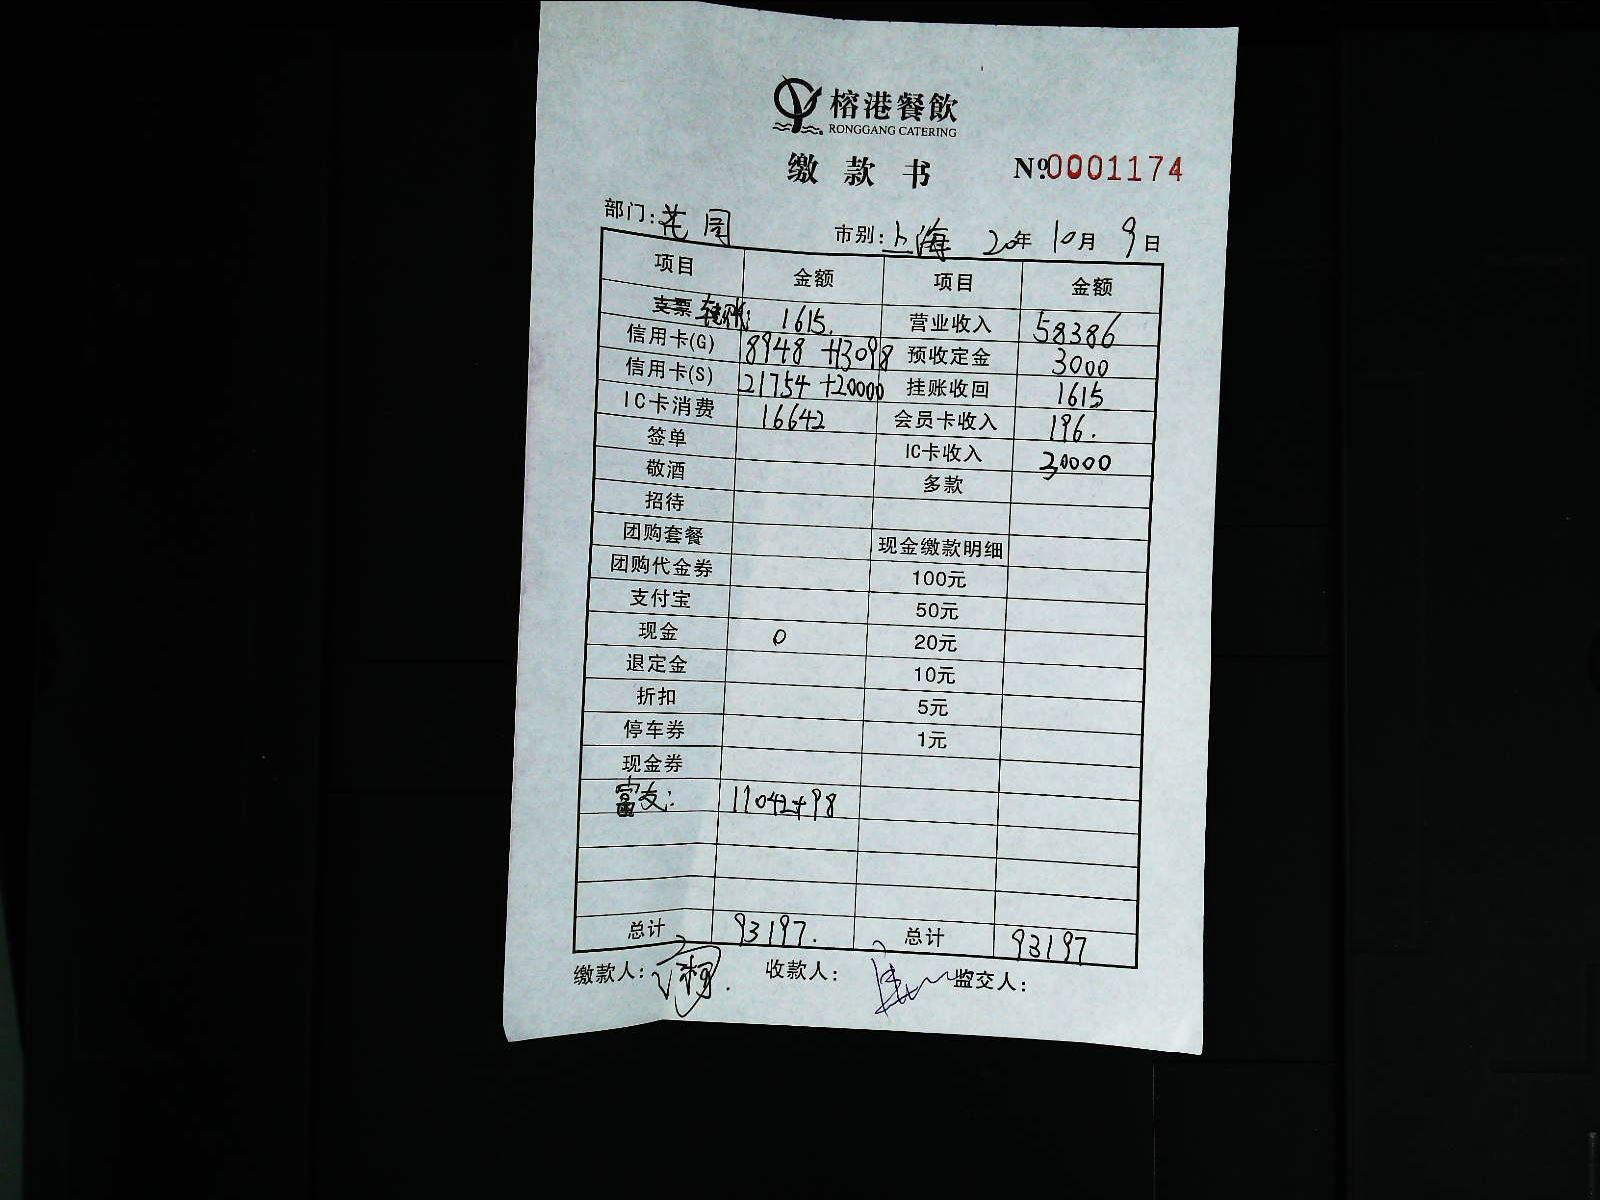 榕港餐飲
RONGGANG CATERING
缴款书 №0001174
部门：花园 市别：上海 20年10月9日
项目 金额 项目 金额
支票 转账: 1615. 营业收入 58386
信用卡(G) 8948 +13098 预收定金 3000
信用卡(S) 21754 +20000 挂账收回 1615
IC卡消费 16642 会员卡收入 196.
签单 IC卡收入 30000
敬酒 多款
招待
团购套餐 现金缴款明细
团购代金券 100元
支付宝 50元
现金 0 20元
退定金 10元
折扣 5元
停车券 1元
现金券
富友: 11042+98
总计 93197. 总计 93197
缴款人： 收款人： 监交人：